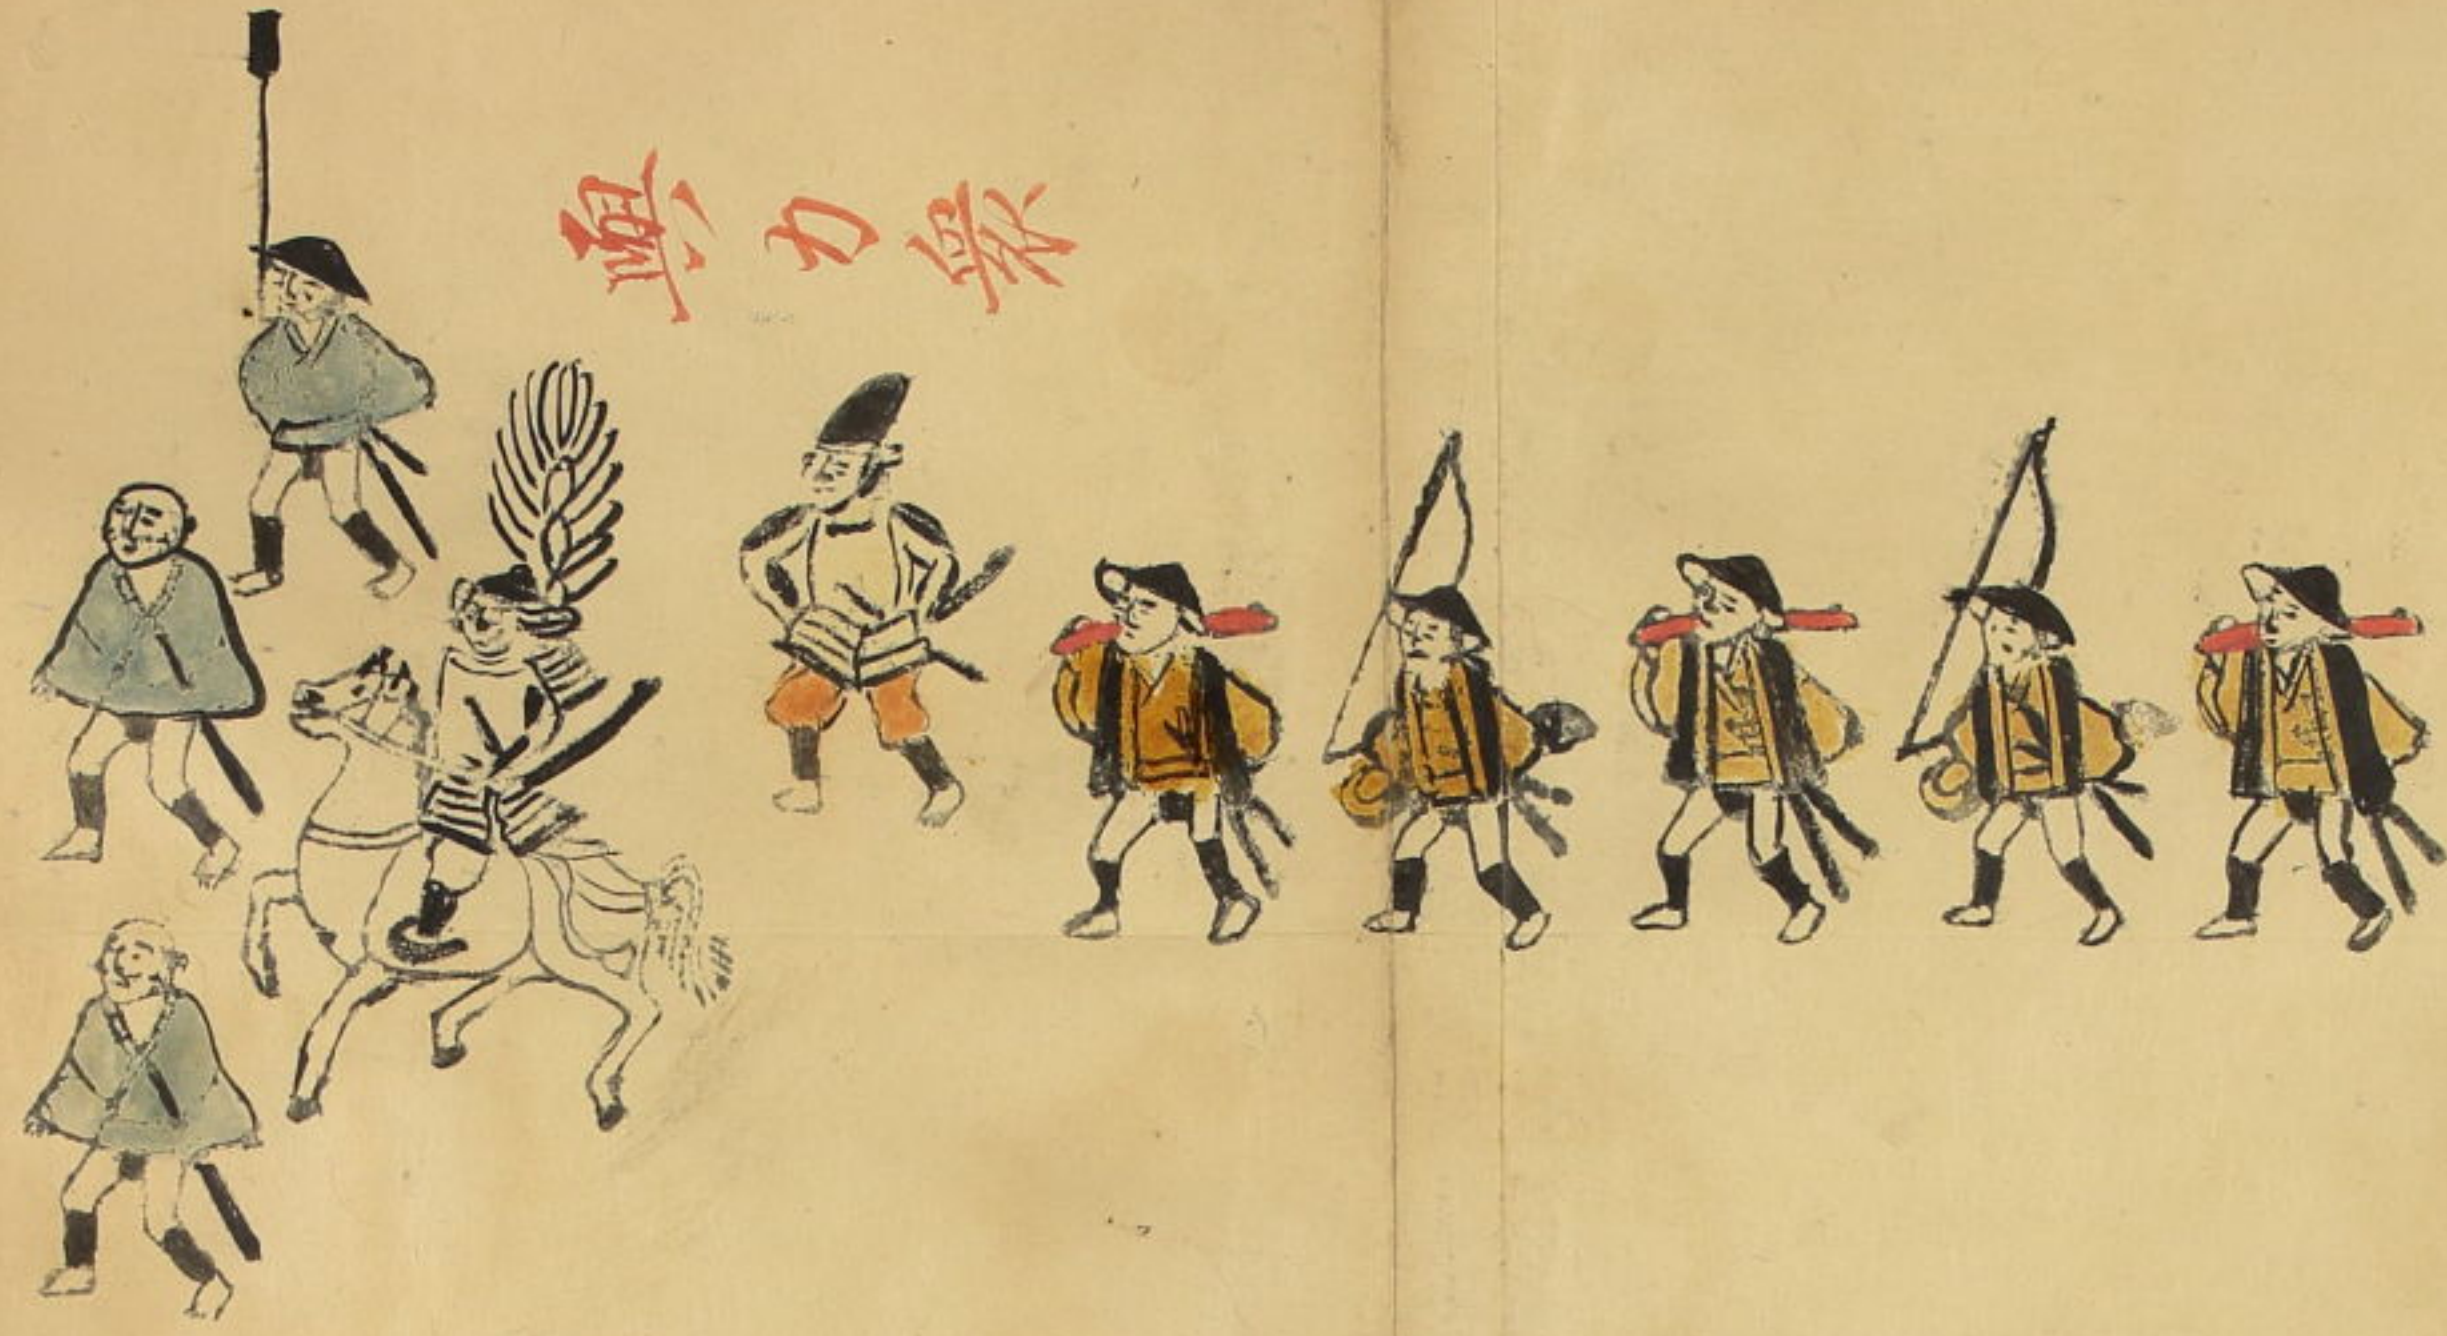 與力衆